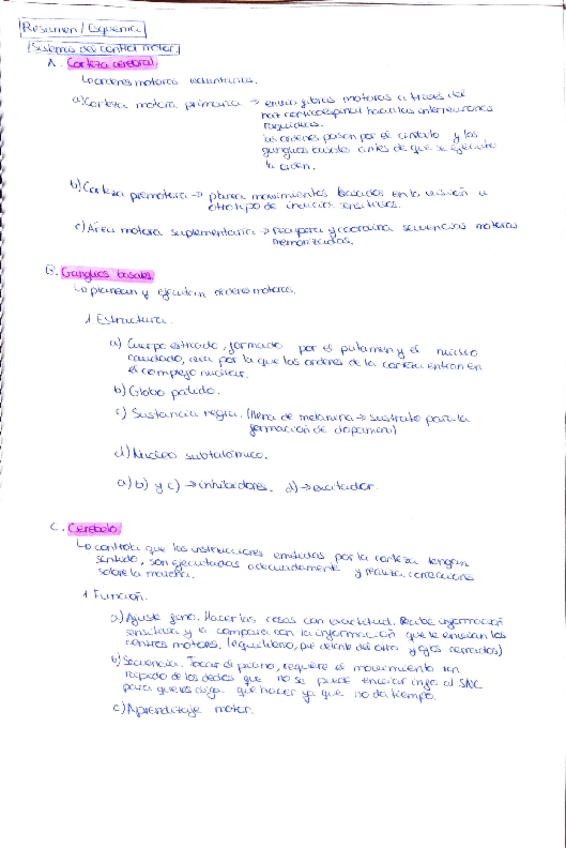 Resumen / Esquema
Sistema del control motor
A. Corteza cerebral.
↳ ordenes motoras voluntarias.
a) Corteza motora primaria → envia fibras motoras a través del
haz corticoespinal hacia las interneuronas
raquídeas.
las ordenes pasan por el cerebelo y los
ganglios basales antes de que se ejecute
la orden.
b) Corteza premotora → planea movimientos basados en la visión u
otro tipo de indicios sensitivos.
c) Área motora suplementaria → recupera y coordina secuencias motoras
memorizadas.
B. Ganglios basales
↳ planean y ejecutan ordenes motoras.
1 Estructura.
a) Cuerpo estriado, formado por el putamen y el núcleo
caudado, cera por la que las ordenes de la corteza entran en
el complejo nuclear.
b) Globo palido.
c) Sustancia negra. (llena de melanina → sustrato para la
formación de dopamina)
d) Núcleo subtalámico.
a) b) y c) → inhibidores. d) → excitador.
C. Cerebelo.
↳ controla que las instrucciones emitidas por la corteza tengan
sentido, son ejecutadas adecuadamente y realiza correcciones
sobre la marcha.
1 Función.
a) Ajuste fino. Hacer las cosas con exactitud. Recibe información
sensitiva y la compara con la información que le envian los
centros motores. (equilibrio, pie delante del otro y ojos cerrados)
b) Secuencia. Tocar el piano, requiere el movimiento tan
rapido de los dedos que no se puede enviar info al SNC
para que les diga que hacer ya que no da tiempo.
c) Aprendizaje motor.